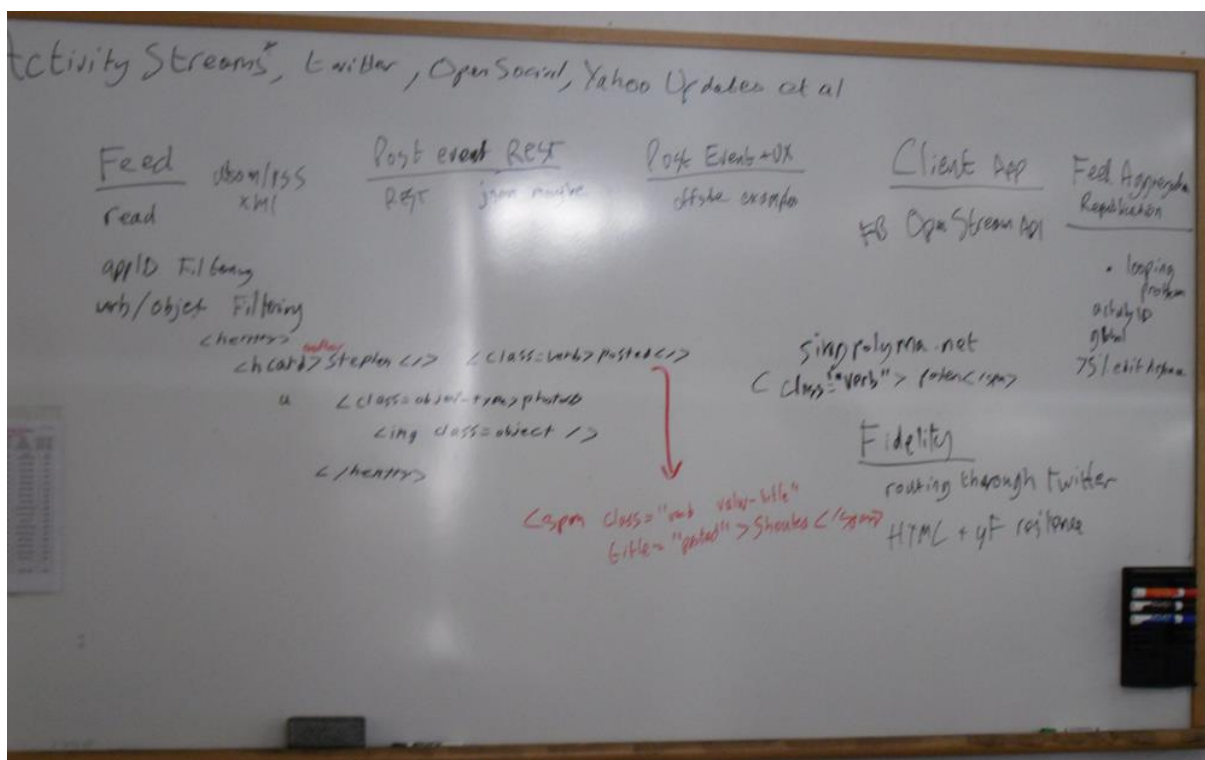 Activity Streams*, twitter, OpenSocial, Yahoo Updates et al
Feed
atom/rss
xml
read
appID Filtering
verb/object Filtering
Post event REST
REST json maybe
Post Event + UX
offsite example
Client App
FB OpenStream API
Feed
Republication
• looping
problem
activity ID
<hentry>
author
<hcard>Stephen</> <class=verb>posted</>
a <class=object-type>photo</>
<img class=object />
</hentry>
<span class="verb value-title"
title="posted">Shouted</span>
singpolyma.net
<class="verb">
Fidelity
routing through twitter
HTML + μF